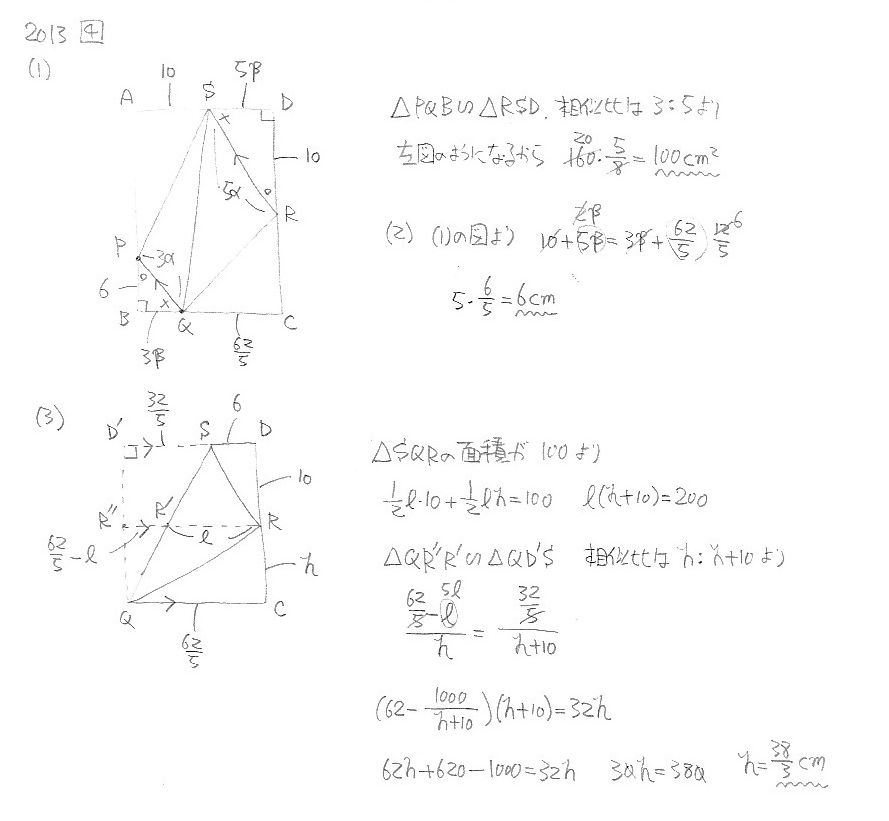 2013 4
(1)
10 5β
A S D
10
5α
R
P 3α
6
B Q C
3β 62/5
△PQB∽△RSD. 相似比は 3:5より
左図のようになるから 20 160・5/8=100cm²
(2) (1)の図より 10+5β=3β+62/5 2β 12/5 6
5・6/5=6cm
(3)
32/5 6
D' S D
10
R'' R' R
62/5-l l
h
Q C
62/5
△SQRの面積が 100より
1/2l・10+1/2lh=100 l(h+10)=200
△QR''R'∽△QD'S 相似比は h:h+10より
(62/5-l)/h=(32/5)/(h+10) 5l
(62-1000/(h+10))(h+10)=32h
62h+620-1000=32h 30h=380 h=38/3cm